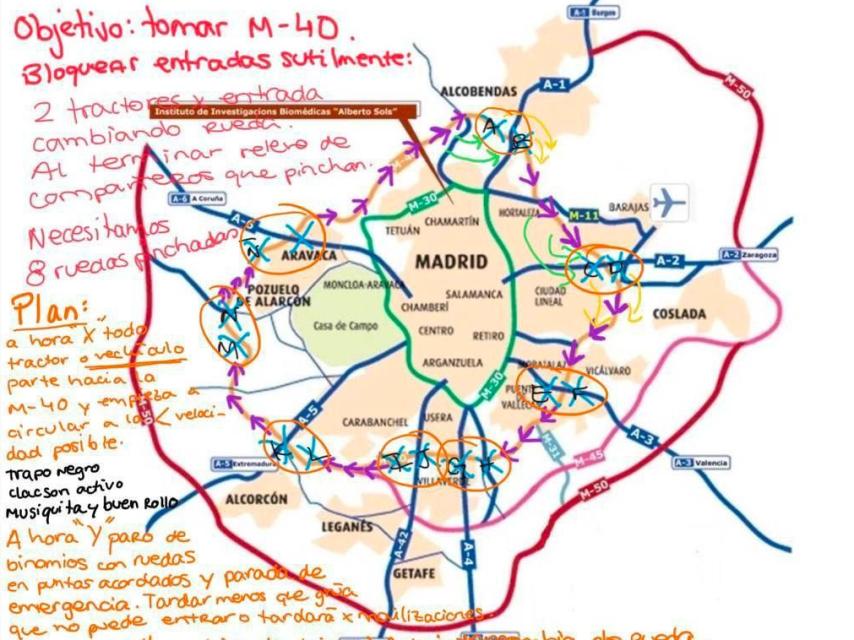 Objetivo: tomar M-40.
Bloquear entradas sutilmente:
2 tractores x entrada
cambiando rueda.
Al terminar relevo de
compañeros que pinchan.
Necesitamos
8 ruedas pinchadas
Plan:
a hora "X" todo
tractor o vechículo
parte hacia la
M-40 y empieza a
circular a la < veloci-
dad posible.
Trapo Negro
Clacson activo
Musiquita y buen Rollo
A hora "Y" paro de
binomios con ruedas
en puntos acordados y parada de
emergencia. Tardar menos que grúa
que no puede entrar o tardará x movilizaciones.
Instituto de Investigacions Biomédicas "Alberto Sols"
A-1 Burgos
A-1
ALCOBENDAS
M-50
A
B
M-40
A-6 A Coruña
A-6
M-30
CHAMARTÍN
HORTALEZA
M-11
BARAJAS
TETUÁN
N
ARAVACA
MADRID
C
D
A-2
A-2 Zaragoza
POZUELO
DE ALARCÓN
MONCLOA-ARAVACA
SALAMANCA
CIUDAD
LINEAL
COSLADA
CHAMBERÍ
Casa de Campo
CENTRO
RETIRO
N
M
ARGANZUELA
MORATALAZ
VICÁLVARO
M-30
PUENTE
VALLECAS
E
F
M-50
A-5
CARABANCHEL
USERA
A-3
K
L
I
J
G
H
VILLAVERDE
M-31
M-45
A-5 Extremadura
A-3 Valencia
M-50
ALCORCÓN
LEGANÉS
A-42
A-4
GETAFE